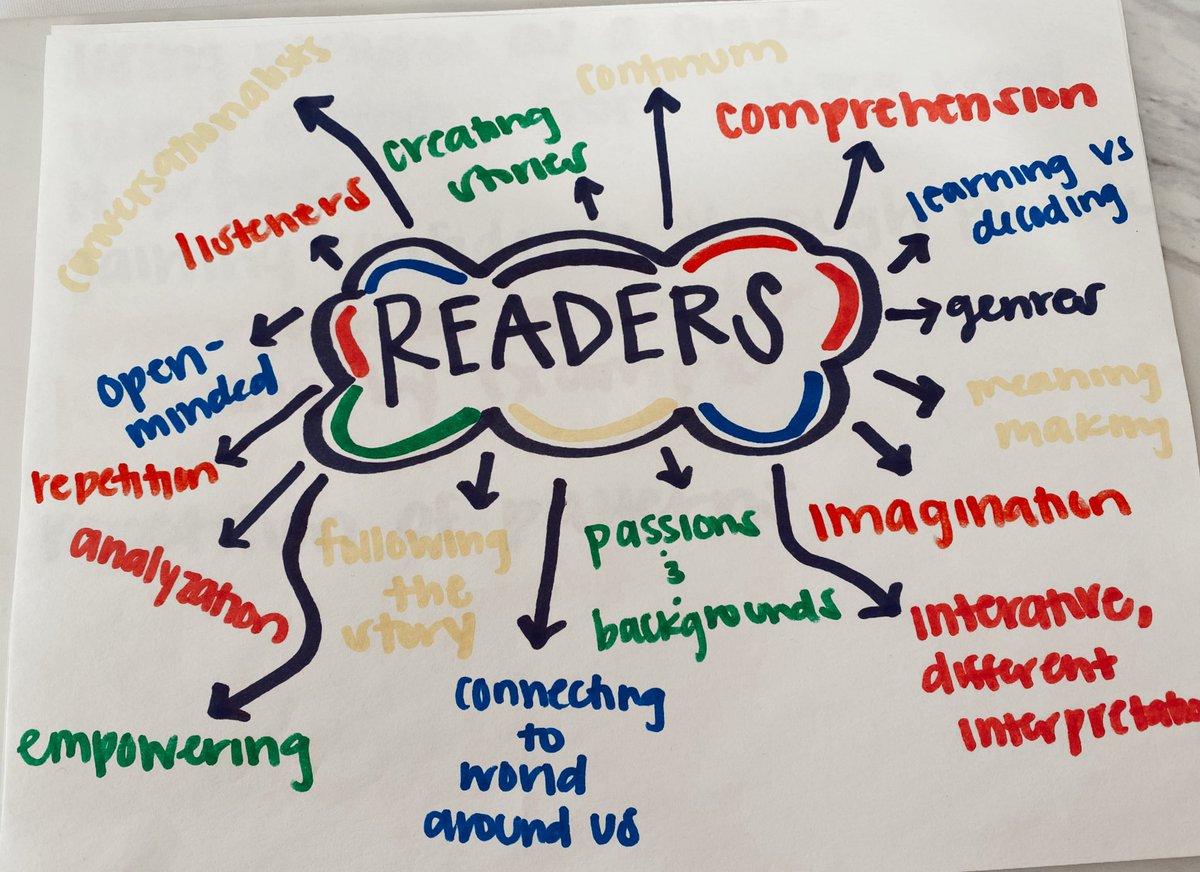 conversationalists
continum
comprehension
creating
stories
listeners
learning vs
decoding
READERS
genres
open-
minded
meaning
making
repetition
imagination
analyzation
following
the
story
passions
&
backgrounds
interative,
different
interpretatio
empowering
connecting
to
world
around us